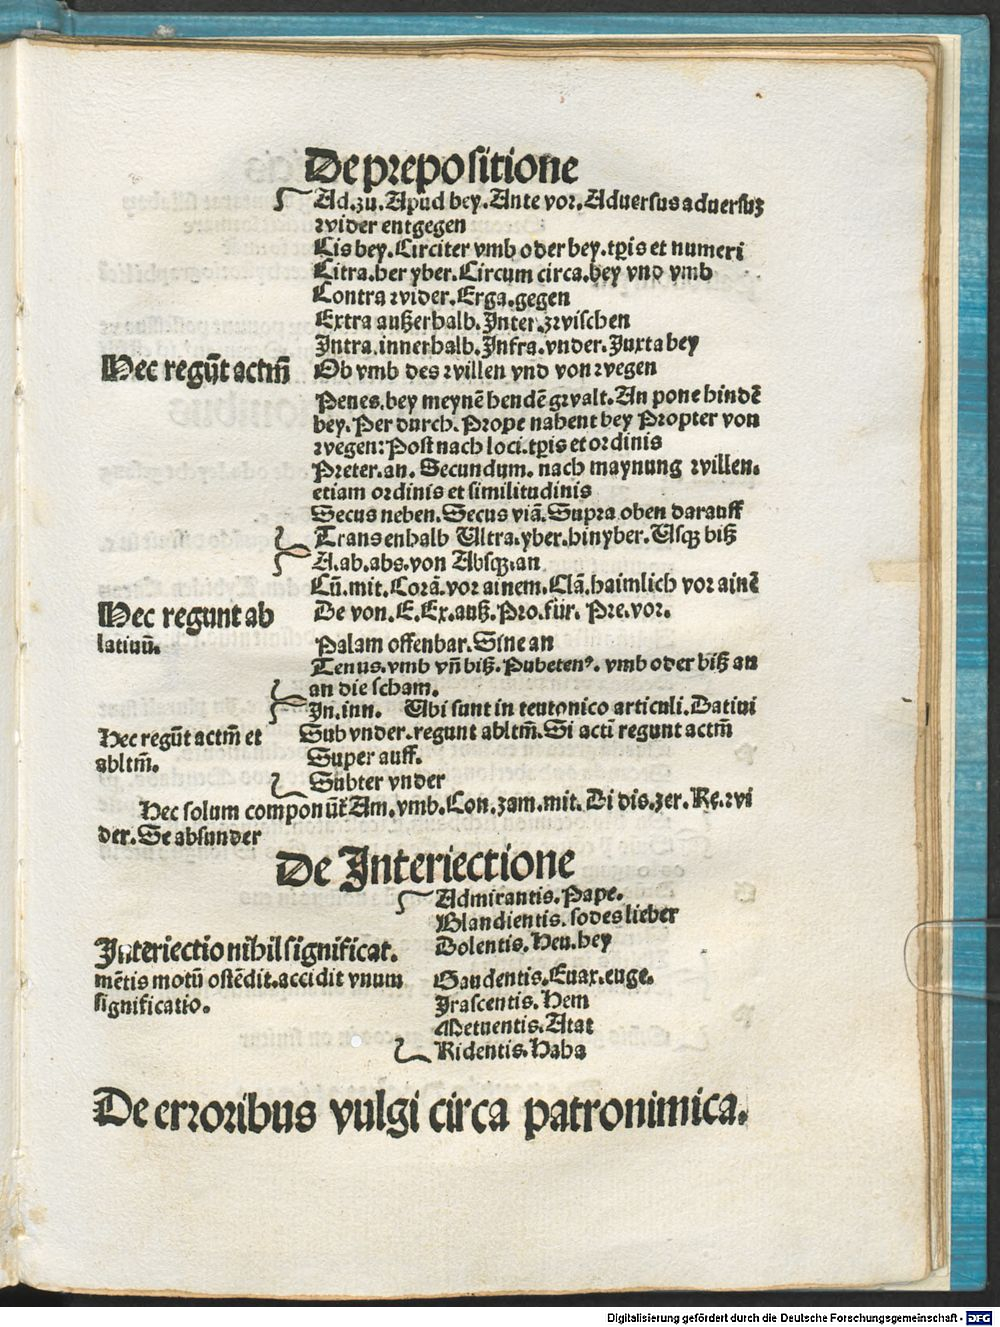 De prepositione
Ad.zu. Apud bey. Ante vor. Aduersus aduersuʒ
wider entgegen
Cis bey. Circiter vmb oder bey. tꝑis et numeri
Citra. her yber. Circum circa. bey vnd vmb
Contra wider. Erga. gegen
Extra außerhalb. Inter. zwischen
Intra. innerhalb. Infra. vnder. Iuxta bey
Hec regūt actm̄
Ob vmb des willen vnd von wegen
Penes. bey meynē hendē gwalt. An pone hindē
bey. Per durch. Prope nahent bey Propter von
wegen: Post nach loci. tꝑis et ordinis
Preter. an. Secundum. nach maynung willen.
etiam ordinis et similitudinis
Secus neben. Secus viā. Supra oben darauff
Trans enhalb Ultra. yber. hinyber. Usqꝫ biß
A. ab. abs. von Absqꝫ. an
Cū. mit. Corā. vor ainem. Clā. haimlich vor ainē
Hec regunt ab
latiuū.
De von. E. Ex. auß. Pro. für. Pre. vor.
Palam offenbar. Sine an
Tenus. vmb vn̄ biß. Pubetenꝰ. vmb oder biß an
an die scham.
In. inn. Ubi sunt in teutonico articuli. Datiui
Hec regūt actm̄ et
abltm̄.
Sub vnder. regunt abltm̄. Si acti regunt actm̄
Super auff.
Subter vnder
Hec solum componūt Am. vmb. Con. zam. mit. Di dis. zer. Re. wi
der. Se absunder
De Interiectione
Admirantis. Pape.
Blandientis. sodes lieber
Interiectio nihil significat.
mētis motū ostēdit. accidit vnum
significatio.
Dolentis. Heu. hey
Gaudentis. Euax. euge.
Irascentis. Hem
Metuentis. Atat
Ridentis. Haha
De erroribus vulgi circa patronimica.
Digitalisierung gefördert durch die Deutsche Forschungsgemeinschaft - DFG